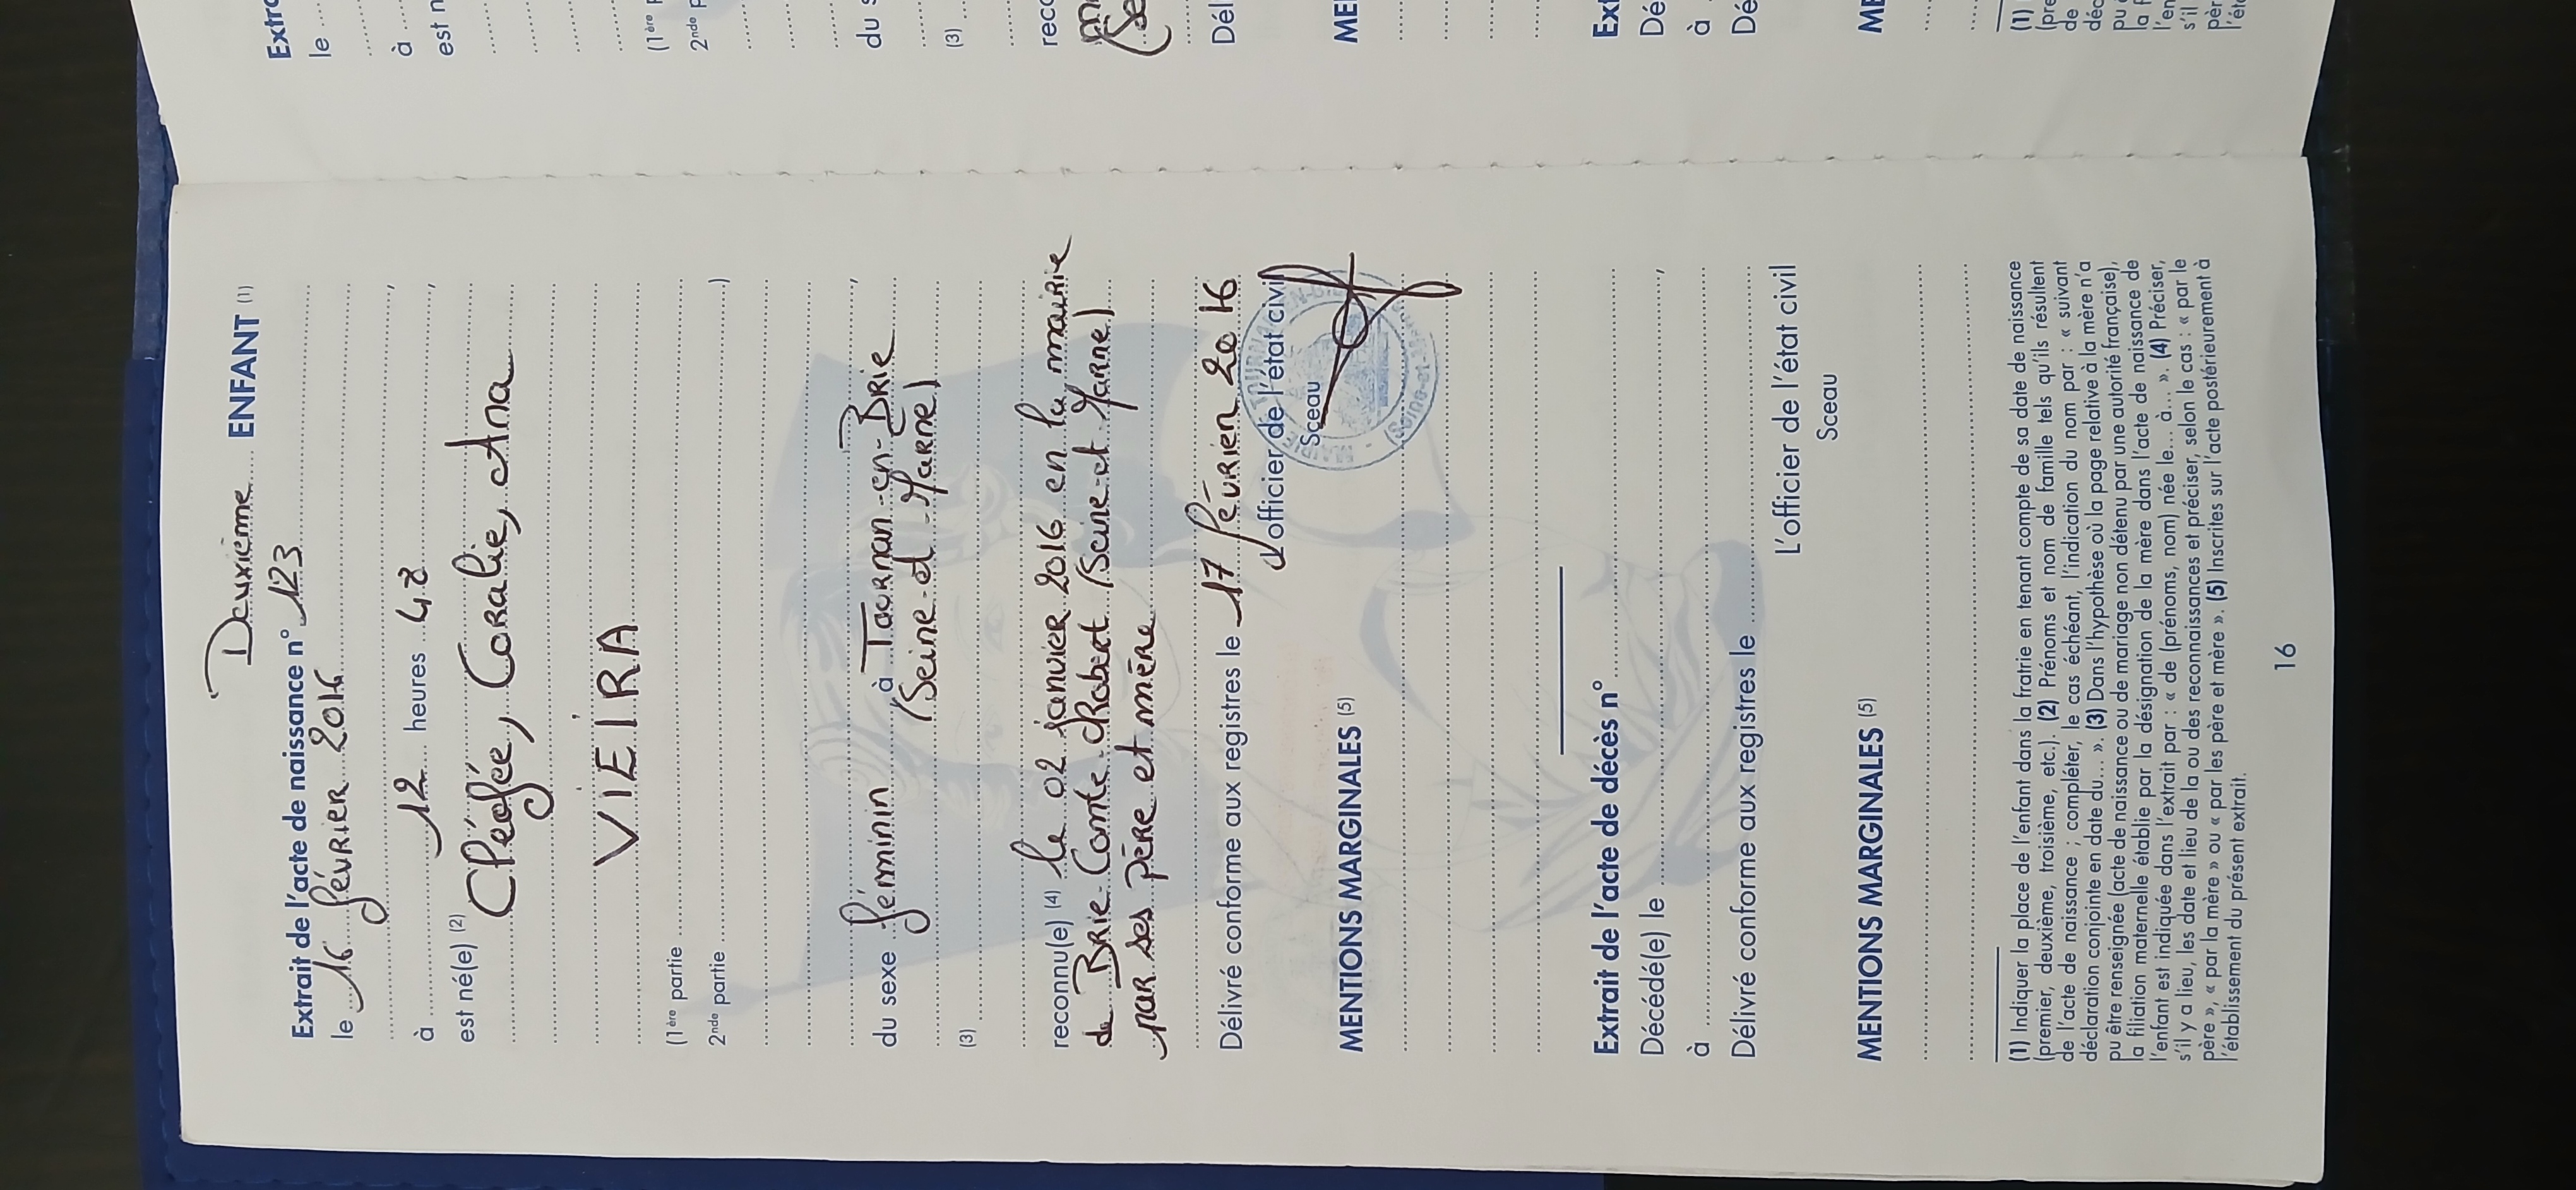 Deuxième ENFANT (1)
Extrait de l'acte de naissance n° 123
le 16 février 2016
à 12 heures 48,
est né(e) (2)
Cléofée, Coralie, Ana
VIEIRA
(1ère partie )
2nde partie )
du sexe féminin à Tournan-en-Brie,
(Seine-et-Marne)
(3)
reconnu(e) (4) le 02 janvier 2016 en la mairie
de Brie-Comte-Robert (Seine-et-Marne)
par ses père et mère
Délivré conforme aux registres le 17 février 2016
L'officier de l'état civil
Sceau
MENTIONS MARGINALES (5)
Extrait de l'acte de décès n°
Décédé(e) le ,
à
Délivré conforme aux registres le
L'officier de l'état civil
Sceau
MENTIONS MARGINALES (5)
(1) Indiquer la place de l'enfant dans la fratrie en tenant compte de sa date de naissance
(premier, deuxième, troisième, etc.). (2) Prénoms et nom de famille tels qu'ils résultent
de l'acte de naissance ; compléter, le cas échéant, l'indication du nom par : « suivant
déclaration conjointe en date du... ». (3) Dans l'hypothèse où la page relative à la mère n'a
pu être renseignée (acte de naissance ou de mariage non détenu par une autorité française),
la filiation maternelle établie par la désignation de la mère dans l'acte de naissance de
l'enfant est indiquée dans l'extrait par : « de (prénoms, nom) née le... à... ». (4) Préciser,
s'il y a lieu, les date et lieu de la ou des reconnaissances et préciser, selon le cas : « par le
père », « par la mère » ou « par les père et mère ». (5) Inscrites sur l'acte postérieurement à
l'établissement du présent extrait.
16
Extra
le
à
est n
(1ère p
2nde p
du s
(3)
reco
Dél
ME
Ext
Dé
à
Dé
ME
(1)
(pre
de
déc
pu
la f
l'en
s'il
pèr
l'éta